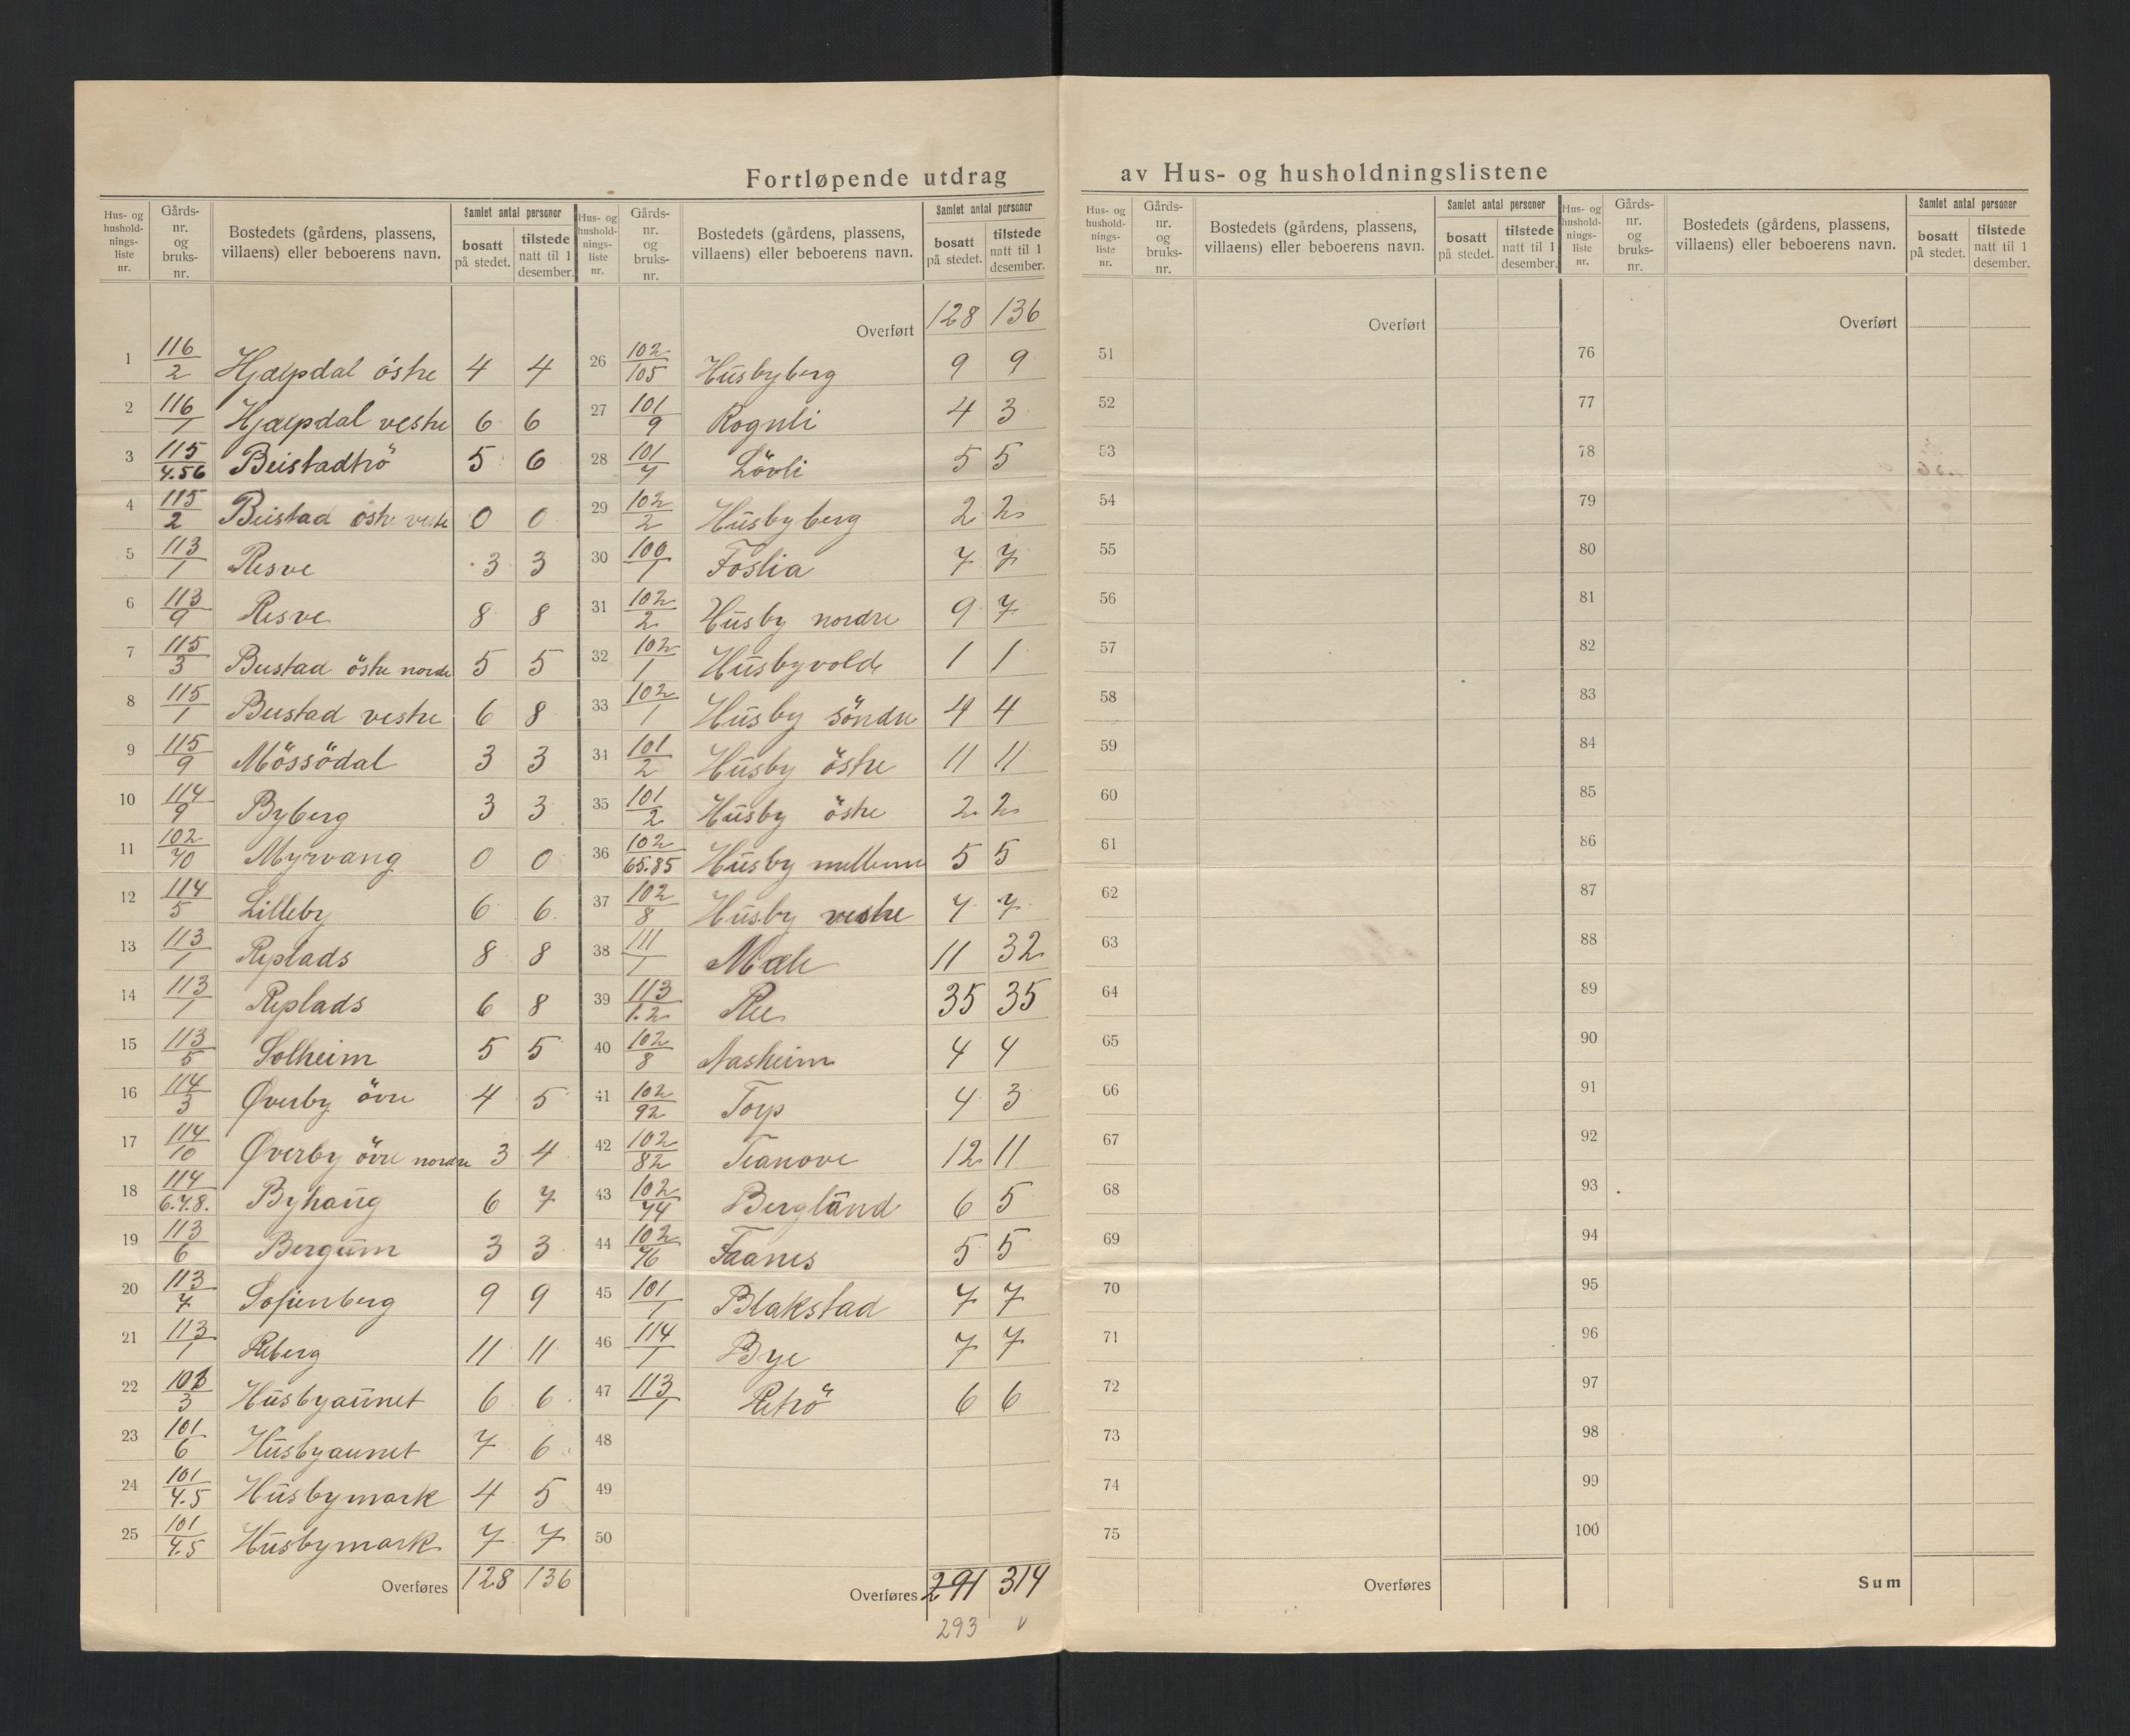 Fortløpende utdrag av Hus- og husholdningslistene
Hus- og hushold-nings-liste nr. Gårds-nr. og bruks-nr. Bostedets (gårdens, plassens, villaens) eller beboerens navn. Samlet antal personer bosatt på stedet. tilstede natt til 1 desember.
1 116/2 Hjælpdal östre 4 4
2 116/1 Hjælpdal vestre 6 6
3 115/4.56 Beistadtrö 5 6
4 115/2 Beistad östre vestre 0 0
5 113/1 Resve 3 3
6 113/9 Resve 8 8
7 115/3 Bustad östre nordre 5 5
8 115/1 Bustad vestre 6 8
9 115/9 Mössödal 3 3
10 114/9 Byberg 3 3
11 102/70 Myrvang 0 0
12 114/5 Lilleby 6 6
13 113/1 Replads 8 8
14 113/1 Replads 6 8
15 113/5 Solheim 5 5
16 114/3 Øverby övre 4 5
17 114/10 Øverby övre nordre 3 4
18 114/6.7.8. Byhaug 6 7
19 113/6 Bergum 3 3
20 113/7 Sofienberg 9 9
21 113/1 Reberg 11 11
22 101/3 Husbyaunet 6 6
23 101/6 Husbyaunet 7 6
24 101/4.5 Husbymark 4 5
25 101/4.5 Husbymark 7 7
Overføres 128 136
Hus- og hushold-nings-liste nr. Gårds-nr. og bruks-nr. Bostedets (gårdens, plassens, villaens) eller beboerens navn. Samlet antal personer bosatt på stedet. tilstede natt til 1 desember.
Overført 128 136
26 102/105 Husbyberg 9 9
27 101/9 Rognli 4 3
28 101/7 Lövli 5 5
29 102/2 Husbyberg 2 2
30 100/1 Foslia 7 7
31 102/2 Husby nordre 9 7
32 102/1 Husbyvold 1 1
33 102/1 Husby söndre 4 4
34 101/2 Husby östre 11 11
35 101/2 Husby östre 2 2
36 102/65.85 Husby mellem 5 5
37 102/8 Husby vestre 7 7
38 111/1 Mæle 11 32
39 113/1.2 Ree 35 35
40 102/8 Aasheim 4 4
41 102/92 Torp 4 3
42 102/82 Teanove 12 11
43 102/74 Bergland 6 5
44 102/76 Faanes 5 5
45 101/1 Blakstad 7 7
46 114/1 Bye 7 7
47 113/1 Retrö 6 6
48
49
50
Overføres 291 314
293 v
Hus- og hushold-nings-liste nr. Gårds-nr. og bruks-nr. Bostedets (gårdens, plassens, villaens) eller beboerens navn. Samlet antal personer bosatt på stedet. tilstede natt til 1 desember.
Overført
51
52
53
54
55
56
57
58
59
60
61
62
63
64
65
66
67
68
69
70
71
72
73
74
75
Overføres
Hus- og hushold-nings-liste nr. Gårds-nr. og bruks-nr. Bostedets (gårdens, plassens, villaens) eller beboerens navn. Samlet antal personer bosatt på stedet. tilstede natt til 1 desember.
Overført
76
77
78
79
80
81
82
83
84
85
86
87
88
89
90
91
92
93
94
95
96
97
98
99
100
Sum